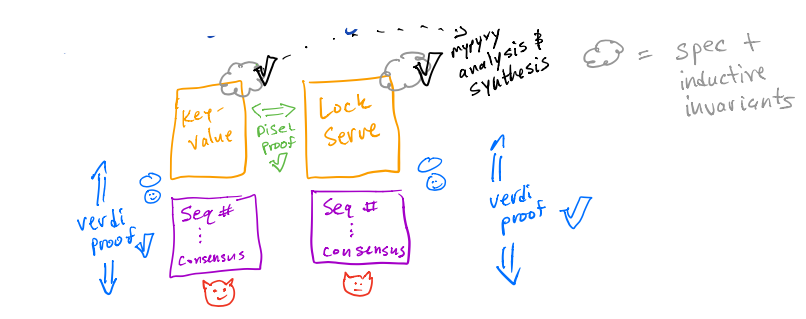 mypyvy
analysis &
synthesis
= spec +
inductive
invariants
Key-
value
Disel
proof
Lock
Serve
verdi
proof
Seq #
consensus
Seq #
consensus
verdi
proof